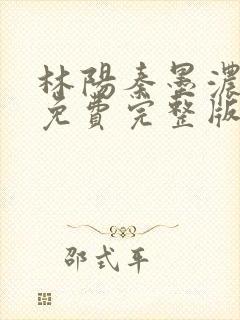 林陽秦墨濃
免費完整版
邵式平